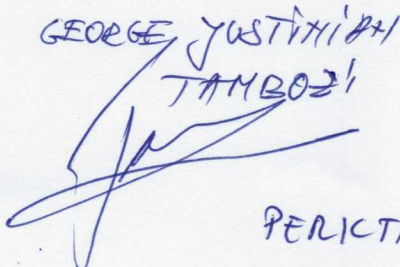 GEORGE JUSTINIAN
TAMBOZI
PERICT